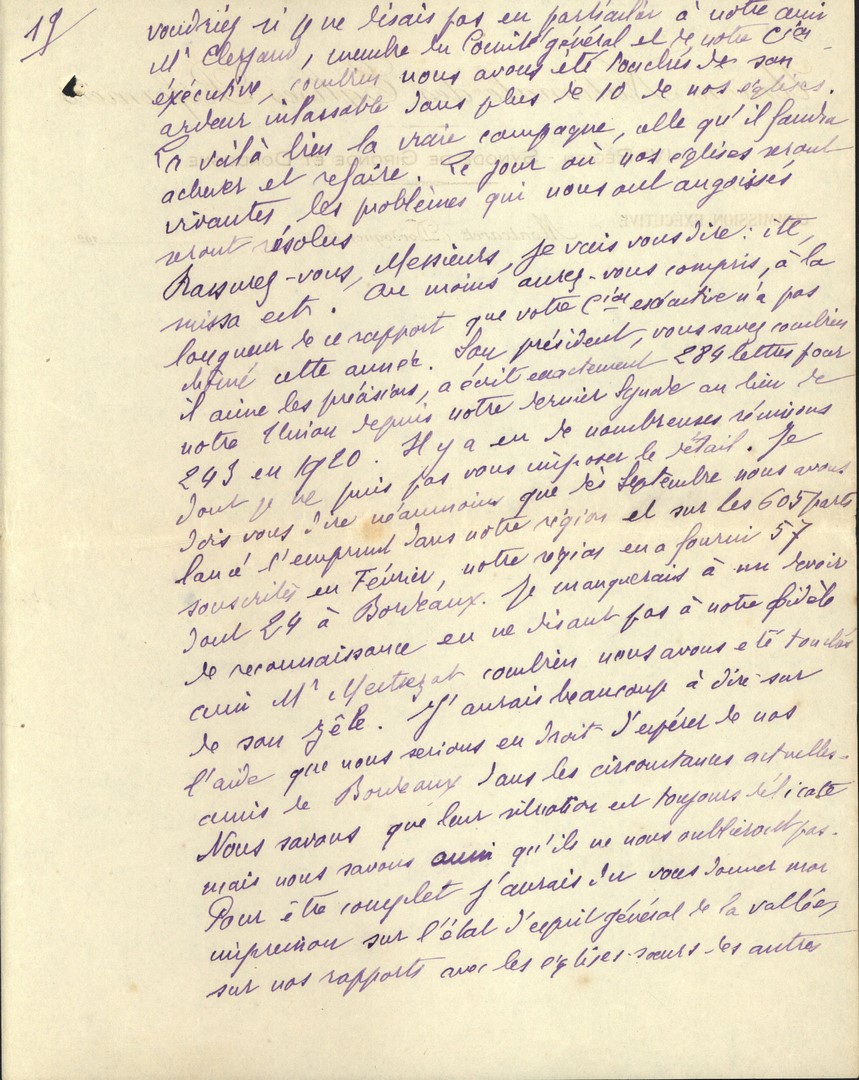 19/
voudriez si je ne disais pas en particulier à notre ami
Mr Clerjaud, membre du Comité général et de notre Cion
éxécutive, combien nous avons été touchés de son
ardeur inlassable dans plus de 10 de nos eglises.
En voilà bien la vraie campagne, celle qu'il faudra
achever et refaire. Le jour où nos eglises seront
vivantes les problèmes qui nous ont angoissés
seront résolus
Rassurez-vous, Messieurs, je vais vous dire : ite,
missa est. Au moins aurez-vous compris, à la
longueur de ce rapport que votre Cion exécutive n'a pas
chômé cette année. Son président, vous savez combien
il aime les précisions, a écrit exactement 284 lettres pour
notre Union depuis notre dernier Synode au lieu de
243 en 1920. Il y a eu de nombreuses réunions
dont je ne puis pas vous imposer le détail. Je
dois vous dire néanmoins que dès Septembre nous avons
lancé l'emprunt dans notre région et sur les 605 parts
souscrites en Février, notre région en a fourni 57
dont 24 à Bordeaux. Je manquerais à un devoir
de reconnaissance en ne disant pas à notre fidèle
ami Mr combien nous avons eté touchés
de son zèle. J'aurais beaucoup à dire sur
l'aide que nous serions en droit d'espérer de nos
amis de Bordeaux dans les circonstances actuelles.
Nous savons que leur situation est toujours délicate
mais nous savons aussi qu'ils ne nous oublieront pas.
Pour être complet j'aurais du vous donner mon
impression sur l'état d'esprit général de la vallée,
sur nos rapports avec les eglises-soeurs des autres